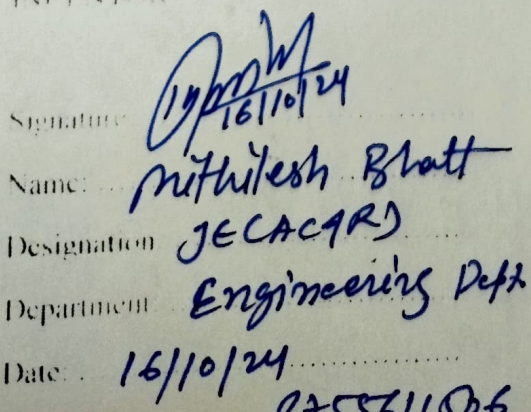 Signature
16/10/24
Name: Mithilesh Bhatt
Designation JE(AC&R)
Department Engineering Dept
Date: 16/10/24